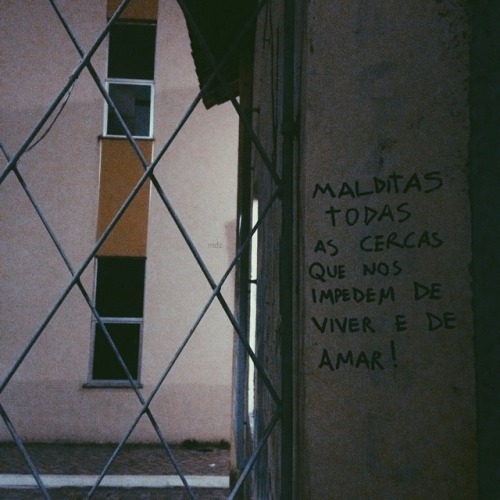 MALDITAS
TODAS
AS CERCAS
QUE NOS
IMPEDEM DE
VIVER E DE
AMAR!
mdz